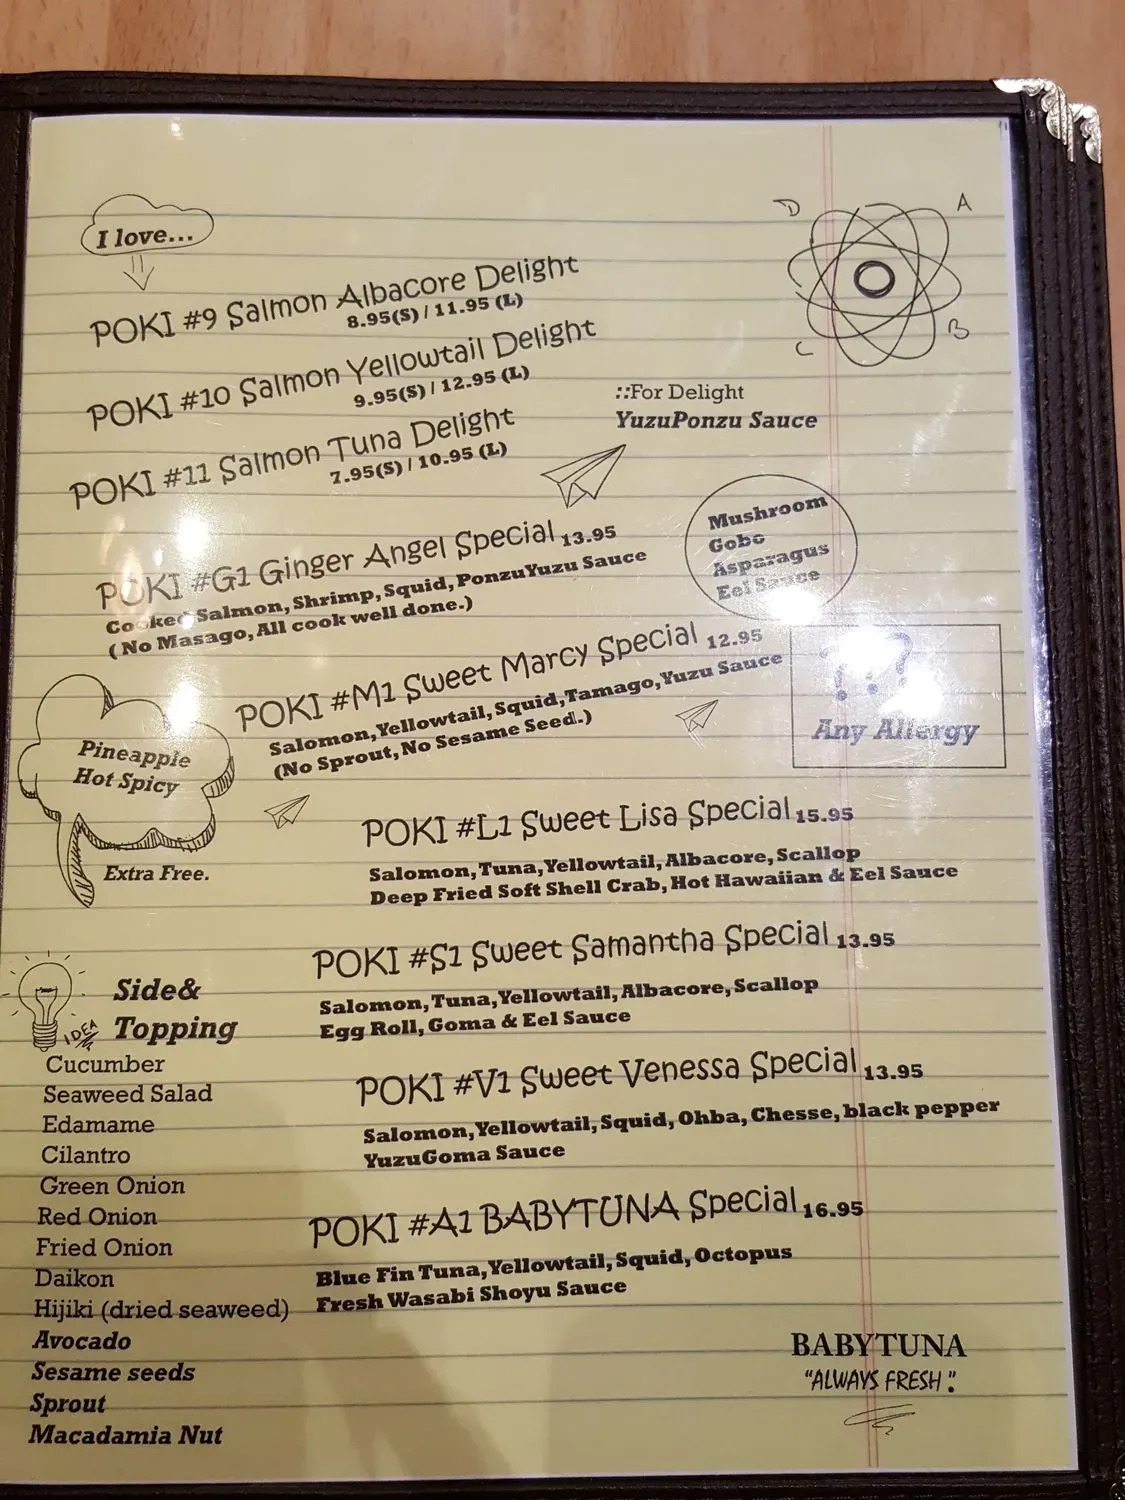 I love...
POKI #9 Salmon Albacore Delight
8.95(S) / 11.95 (L)
POKI #10 Salmon Yellowtail Delight
9.95(S) / 12.95 (L)
POKI #11 Salmon Tuna Delight
7.95(S) / 10.95 (L)
D
A
B
C
::For Delight
YuzuPonzu Sauce
POKI #G1 Ginger Angel Special 13.95
Cooked Salmon, Shrimp, Squid, PonzuYuzu Sauce
( No Masago, All cook well done.)
Mushroom
Gobo
Asparagus
Eel Sauce
POKI #M1 Sweet Marcy Special 12.95
Salomon,Yellowtail, Squid,Tamago,Yuzu Sauce
(No Sprout, No Sesame Seed.)
???
Any Allergy
Pineapple
Hot Spicy
Extra Free.
POKI #L1 Sweet Lisa Special 15.95
Salomon, Tuna,Yellowtail, Albacore, Scallop
Deep Fried Soft Shell Crab, Hot Hawaiian & Eel Sauce
POKI #S1 Sweet Samantha Special 13.95
Salomon, Tuna,Yellowtail, Albacore, Scallop
Egg Roll, Goma & Eel Sauce
POKI #V1 Sweet Venessa Special 13.95
Salomon,Yellowtail, Squid, Ohba, Chesse, black pepper
YuzuGoma Sauce
POKI #A1 BABYTUNA Special 16.95
Blue Fin Tuna,Yellowtail, Squid, Octopus
Fresh Wasabi Shoyu Sauce
IDEA
Side&
Topping
Cucumber
Seaweed Salad
Edamame
Cilantro
Green Onion
Red Onion
Fried Onion
Daikon
Hijiki (dried seaweed)
Avocado
Sesame seeds
Sprout
Macadamia Nut
BABYTUNA
"ALWAYS FRESH."